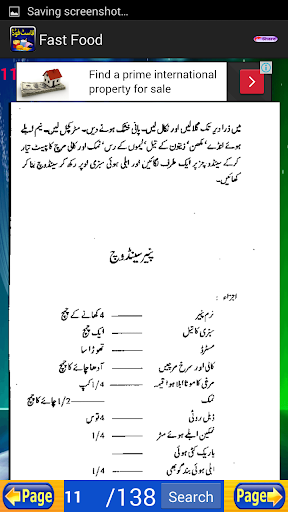 Saving screenshot...
فاسٹ فوڈ
Fast Food
Share
11
Find a prime international
property for sale
میں ذرا دیر تک گلا لیں اور نکال لیں۔ پانی خشک ہونے دیں۔ مٹر کچل لیں۔ نیم ابلے
ہوئے انڈے، مکھن، زیتون کے تیل، لیموں کے رس، نمک اور کالی مرچ کا پیسٹ تیار
کر کے سینڈوچز پر ایک طرف لگائیں اور ابلی ہوئی سبزی اوپر رکھ کر سینڈوچ بنا کر
کھائیں۔
پنیر سینڈوچ
اجزاء:
نرم پنیر 4 کھانے کے چمچ
سبزی کا تیل ایک چمچ
مسٹرڈ تھوڑا سا
کالی اور سرخ مرچیں آدھا چائے کا چمچ
مرغی کا موٹا ابلا ہوا قیمہ 1/4 کپ
نمک 1/2 چائے کا چمچ
ڈبل روٹی 4 توس
نمکین ابلے ہوئے مٹر 1/4
باریک کٹی ہوئی
ابلی ہوئی بند گوبھی 1/4
Page 11 /138 Search Page